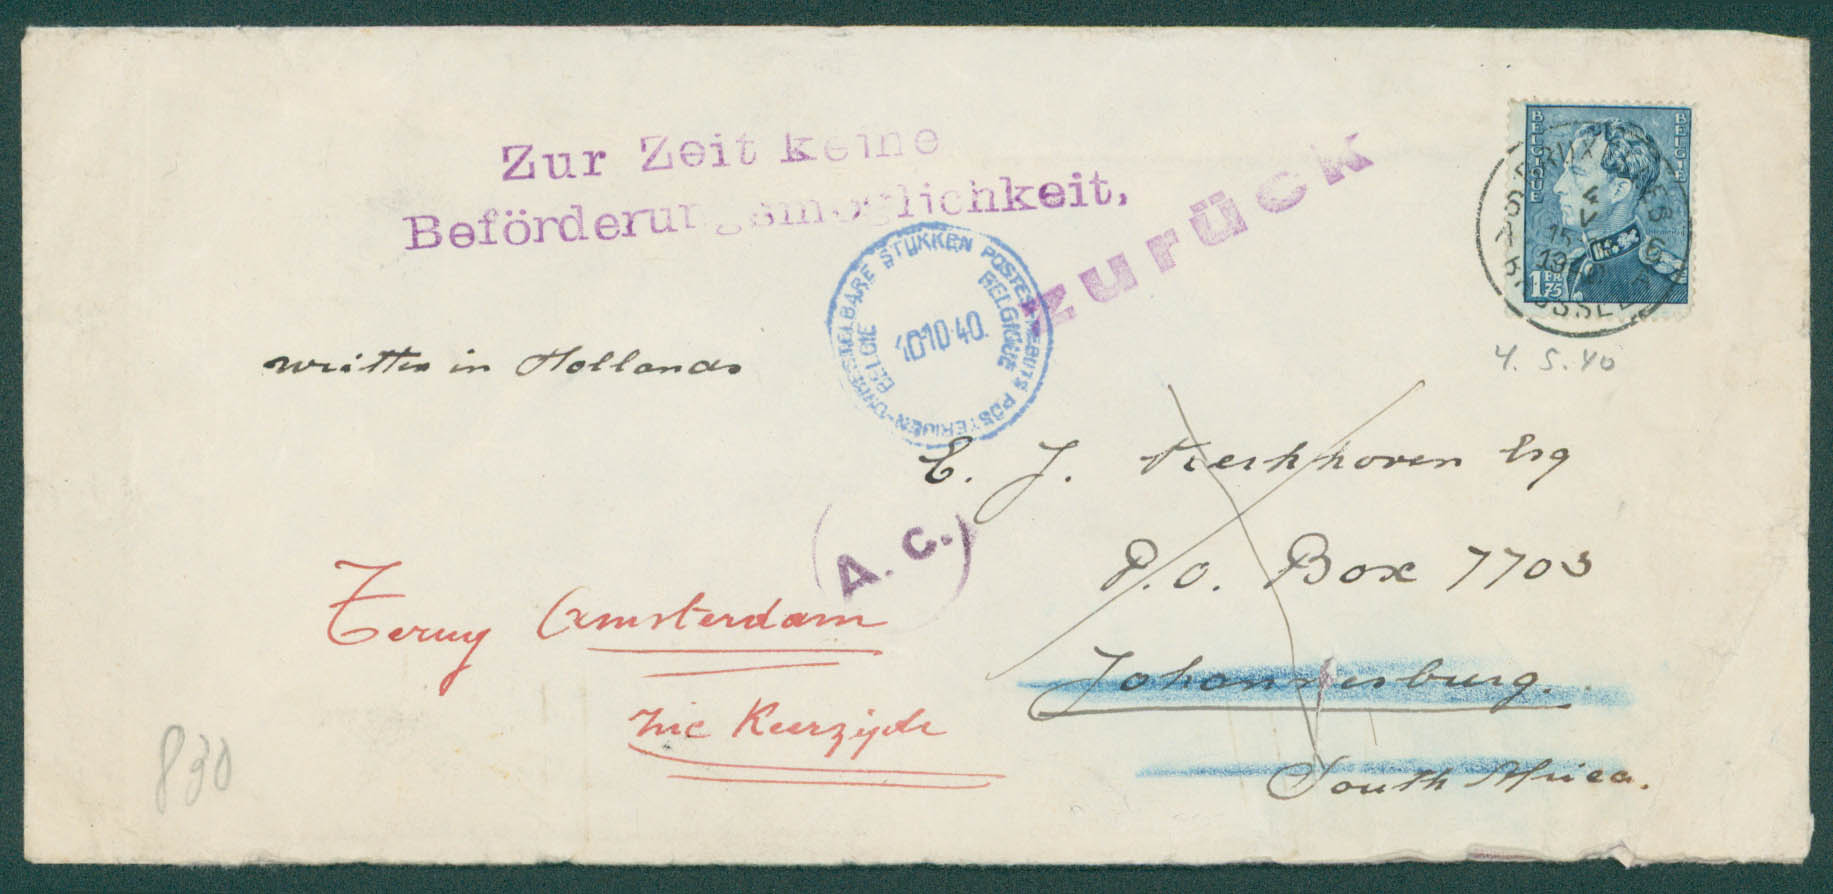 Zur Zeit keine
Beförderungsmöglichkeit,
zurück
BELGIQUE
BELGIE
1 FR 75
BRUXELLES 6
BRUSSEL
4 V
15
1940
4. 5. 40
POSTES-REBUTS
POSTERIJEN-ONBESTELBARE STUKKEN
BELGIQUE
BELGIE
10 10 40
written in Holland
E. J. Kerkhoven Esq
P.O. Box 7703
Johannesburg.
South Africa.
(A. C.)
Terug Amsterdam
zie Keerzijde
830